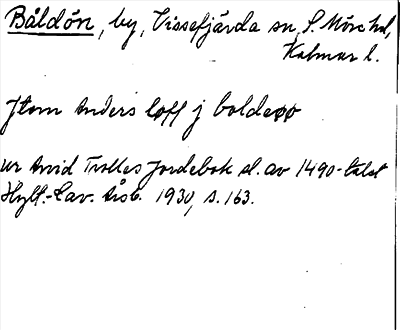 Båldön, by, Vissefjärda sn, S. Möre hd,
Kalmar l.
Jtem Anders loff j boldeøø
ur Arvid Trolles Jordebok sl. av 1490-talet
Hylt.-Cav. Årsb. 1930, s. 163.